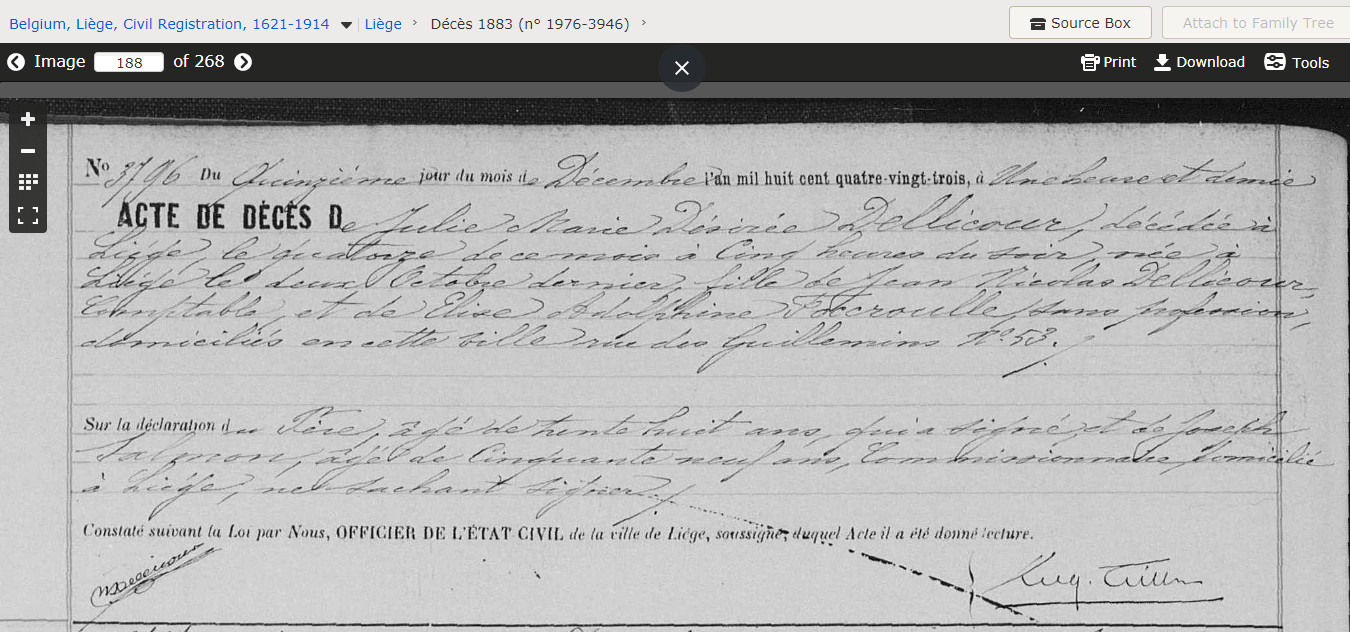 Belgium, Liège, Civil Registration, 1621-1914 Liège › Décès 1883 (n° 1976-3946) › Source Box Attach to Family Tree
Image 188 of 268 Print Download Tools
N° 3796 Du Quinzième jour du mois de Décembre l'an mil huit cent quatre-vingt-trois, à Une heure et demie
ACTE DE DÉCÈS De Julie Marie Désirée Dellicour, décédée à
Liége, le quatorze de ce mois à Cinq heures du soir, née à
Liége le deux Octobre dernier, fille de Jean Nicolas Dellicour,
Comptable, et de Elise Adolphine Focroulle, sans profession,
domiciliés en cette ville rue des Guillemins N° 53.
Sur la déclaration du Père, âgé de trente huit ans, qui a signé et de Joseph
Salmon, âgé de Cinquante neuf ans, Commissionnaire domicilié
à Liége, ne sachant signer.
Constaté suivant la Loi par Nous, OFFICIER DE L'ÉTAT CIVIL de la ville de Liége, soussigné, duquel Acte il a été donné lecture.